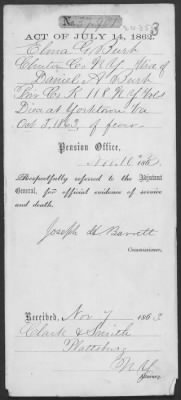 No.
ACT OF JULY 14, 1862.
Elma G. Burk
Clinton Co N.Y.
Daniel A Burk
Priv Co. K 118 N Y Vols
Died at Yorktown Va
Oct 5, 1863, of fever.
Pension Office,
Nov 16 1863
Respectfully referred to the Adjutant
General, for official evidence of service
and death.
Joseph H Barrett
Commissioner.
Received, Nov 7 1863
Clark & Smith
Plattsburg
N.Y.
Attorney.